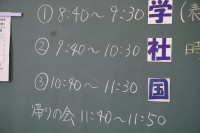 ① 8:40～9:30 学 (表
② 9:40～10:30 社 時
③ 10:40～11:30 国
帰りの会 11:40～11:50